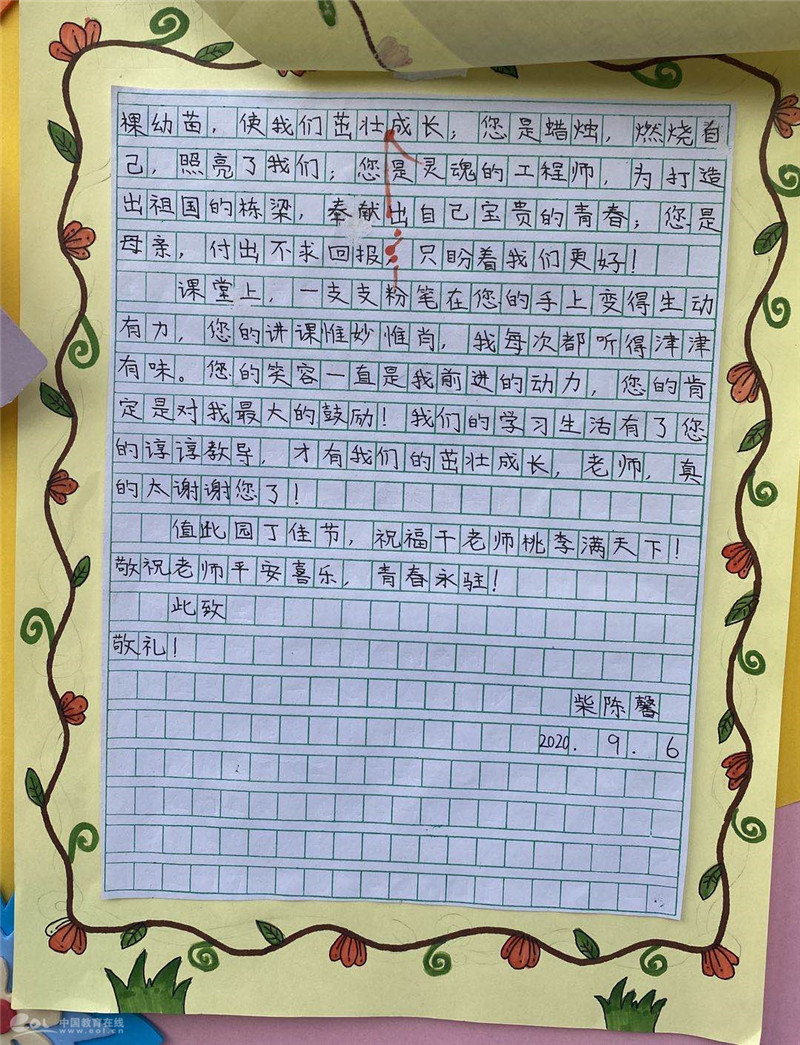 棵幼苗，使我们茁壮成长；您是蜡烛，燃烧自
己，照亮了我们；您是灵魂的工程师，为打造
出祖国的栋梁，奉献出自己宝贵的青春；您是
母亲，付出不求回报，只盼着我们更好！
课堂上，一支支粉笔在您的手上变得生动
有力，您的讲课惟妙惟肖，我每次都听得津津
有味。您的笑容一直是我前进的动力，您的肯
定是对我最大的鼓励！我们的学习生活有了您
的谆谆教导，才有我们的茁壮成长，老师，真
的太谢谢您了！
值此园丁佳节，祝福千老师桃李满天下！
敬祝老师平安喜乐，青春永驻！
此致
敬礼！
柴陈馨
2020.9.6
eol 中国教育在线
www.eol.cn